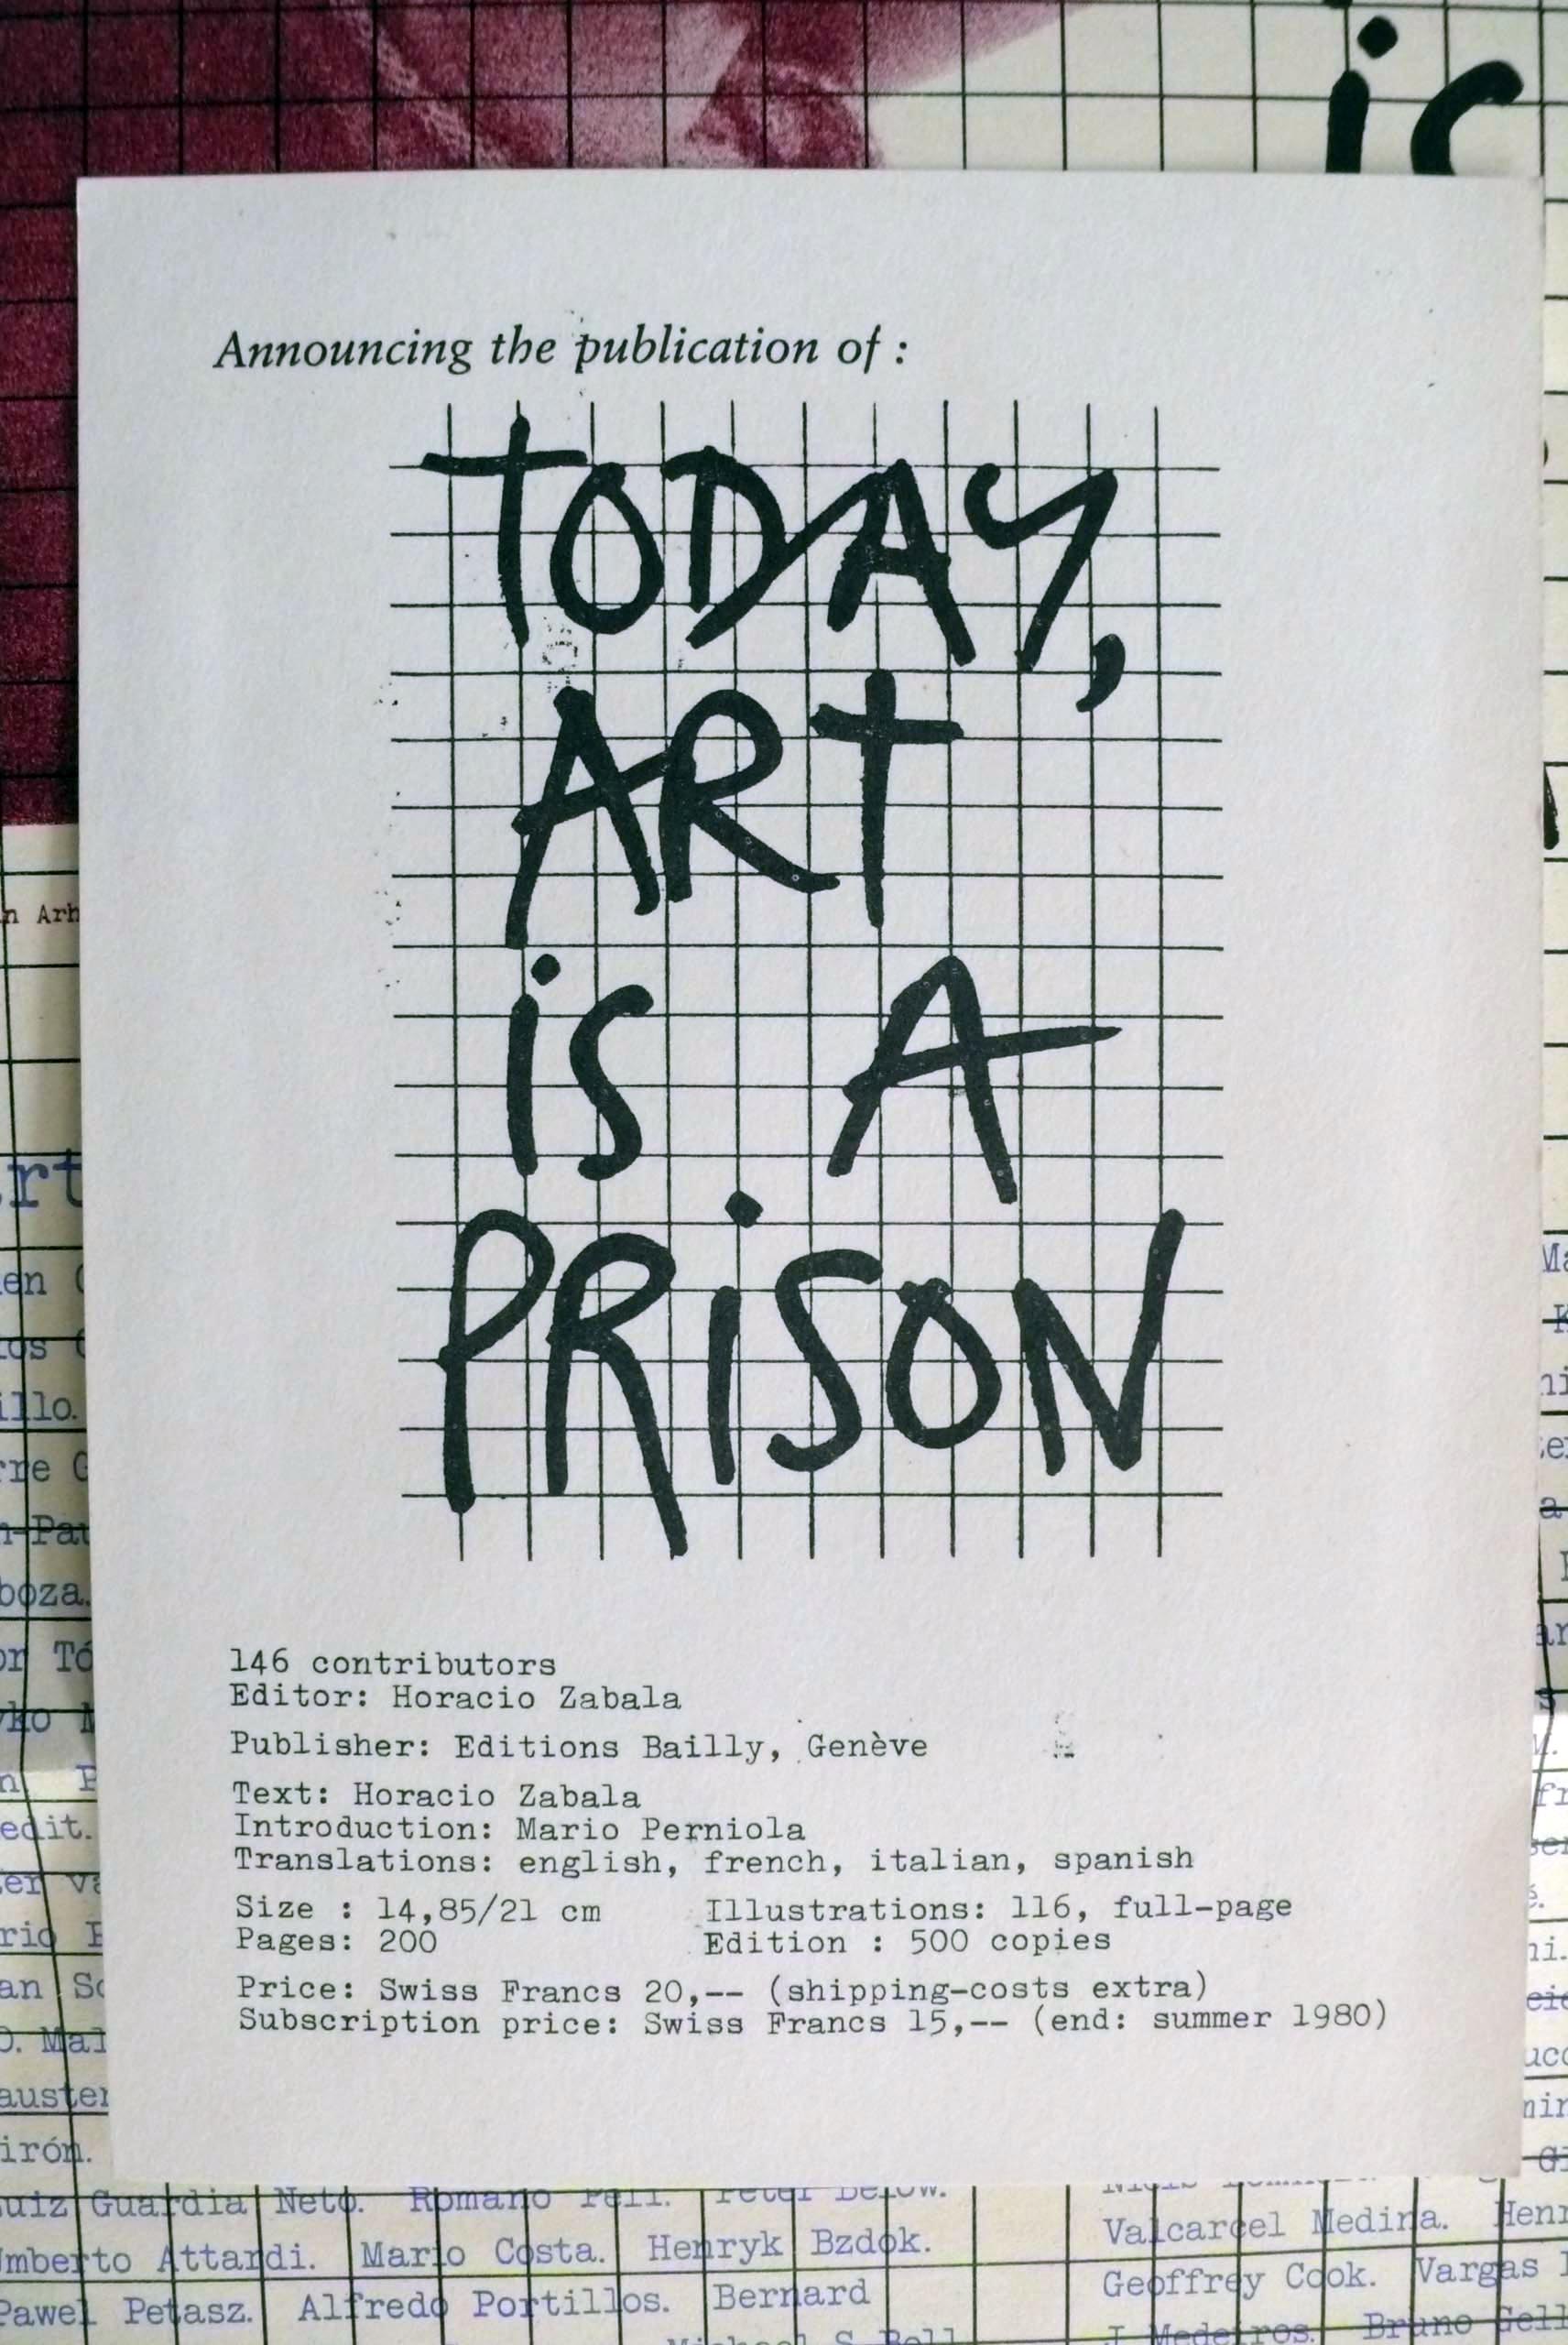 ic
Announcing the publication of :
TODAY,
ART
iS A
PRiSON
146 contributors
Editor: Horacio Zabala
Publisher: Editions Bailly, Genève
Text: Horacio Zabala
Introduction: Mario Perniola
Translations: english, french, italian, spanish
Size : 14,85/21 cm Illustrations: 116, full-page
Pages: 200 Edition : 500 copies
Price: Swiss Francs 20,-- (shipping-costs extra)
Subscription price: Swiss Francs 15,-- (end: summer 1980)
n Arh
rt
en
os
illo.
rre G
n Pau
boza.
or Tó
ko M
edit.
er va
rio
an So
O. Mal
auster
irón.
uiz Guardia Neto. Romano Peli. Peter Below.
Umberto Attardi. Mario Costa. Henryk Bzdok. Valcarcel Medina. Henr
Pawel Petasz. Alfredo Portillos. Bernard Geoffrey Cook. Vargas
Michael S Bell J Medeiros. Bruno Gell